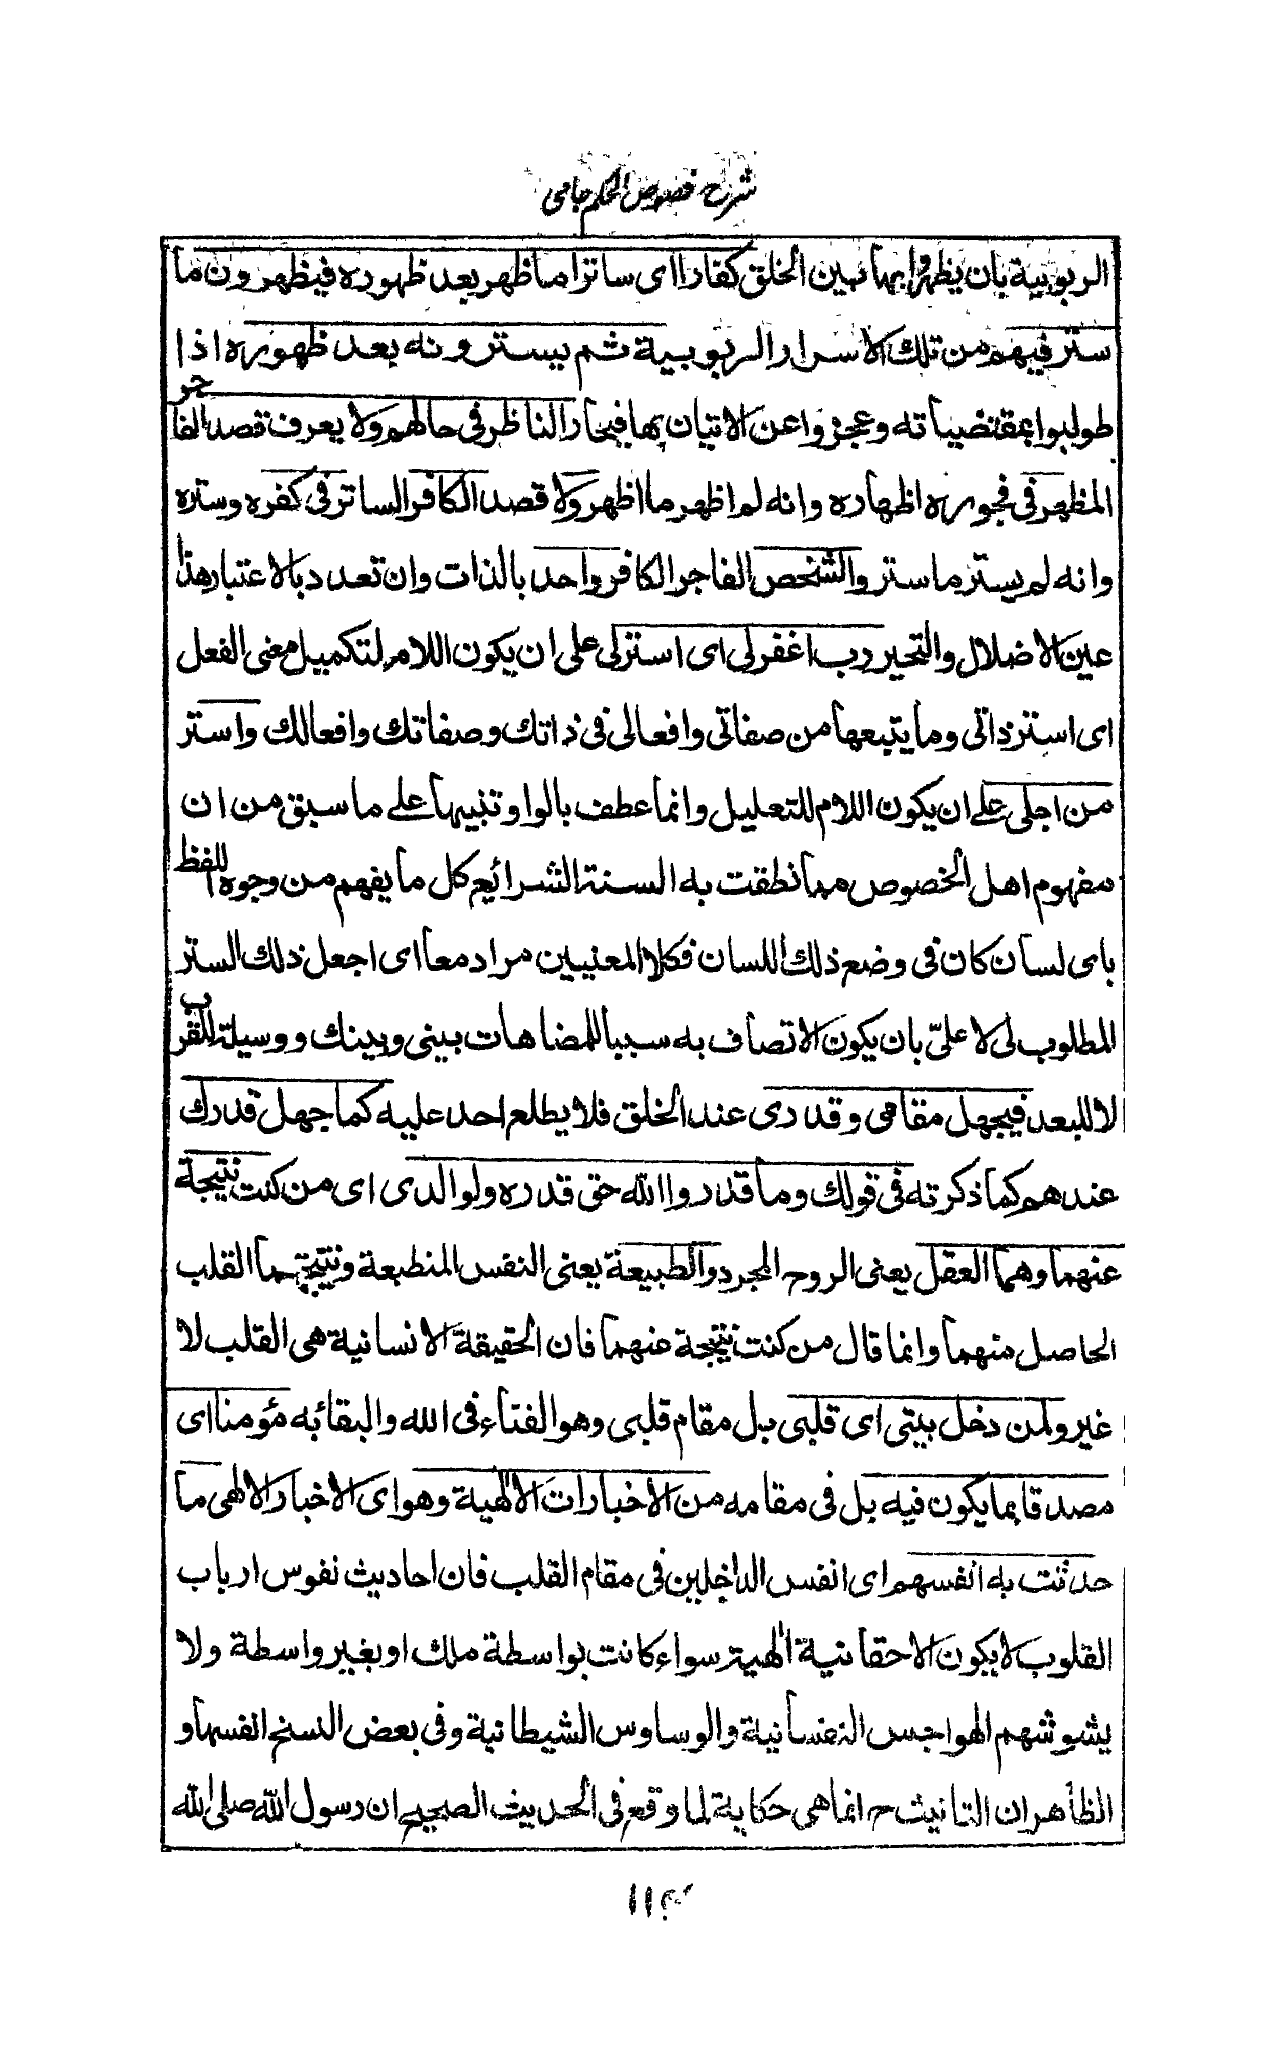 شرح فصوص الحكم جامى
الربوبية بان يظهروا بها بين الخلق كفارا اى ساترا ما ظهر بعد ظهوره فيظهرون ما
ستر فيهم من تلك الاسرار الربوبية ثم يسترونه بعد ظهوره اذا
طولبوا بمقتضياته وعجزوا عن الاتيان بها فيحار الناظر فى حالهم ولا يعرف قصد الفاجر
المظهر فى فجوره اظهاره وانه لم اظهر ما اظهر ولا قصد الكافر الساتر فى كفره وستره
وانه لم يستر ما ستر والشخص الفاجر الكافر واحد بالذات وان تعدد بالاعتبار هذا
عين الاضلال والتحير رب اغفر لى اى استر لى على ان يكون اللام لتكميل معنى الفعل
اى استر ذاتى وما يتبعها من صفاتى وافعالى فى ذاتك وصفاتك وافعالك واستر
من اجلى على ان يكون اللام للتعليل وانما عطف بالواو تنبيها على ما سبق من ان
مفهوم اهل الخصوص مما نطقت به السنة الشرائع كل ما يفهم من وجوه اللفظ
باى لسان كان فى وضع ذلك اللسان فكلا المعنيين مراد معا اى اجعل ذلك الستر
المطلوب لى لا علىّ بان يكون الاتصاف به سببا للمضاهات بينى وبينك ووسيلة للقرب
لا للبعد فيجهل مقامى وقدرى عند الخلق فلا يطلع احد عليه كما جهل قدرك
عندهم كما ذكرته فى قولك وما قدروا الله حق قدره ولوالدى اى من كنت نتيجة
عنهما وهما العقل يعنى الروح المجرد والطبيعة يعنى النفس المنطبعة ونتيجتهما القلب
الحاصل منهما وانما قال من كنت نتيجة عنهما فان الحقيقة الانسانية هى القلب لا
غير ولمن دخل بيتى اى قلبى بل مقام قلبى وهو الفناء فى الله والبقائه مؤمنا اى
مصدقا بما يكون فيه بل فى مقامه من الاخبارات الالهية وهو اى الاخبار الالهى ما
حدثت به انفسهم اى انفس الداخلين فى مقام القلب فان احاديث نفوس ارباب
القلوب لا يكون الا حقانية الهية سواء كانت بواسطة ملك او بغير واسطة ولا
يشوشهم الهواجس النفسانية والوساوس الشيطانية وفى بعض النسخ انفسها و
الظاهر ان التانيث ح انما هى حكاية لما وقع فى الحديث الصحيح ان رسول الله صلى الله